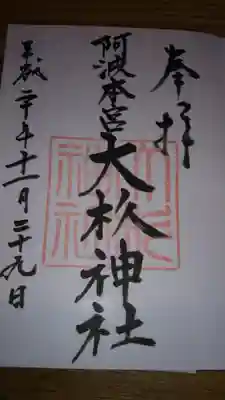 奉拝
阿波本宮
大杁神社
平成二十年十一月二十九日